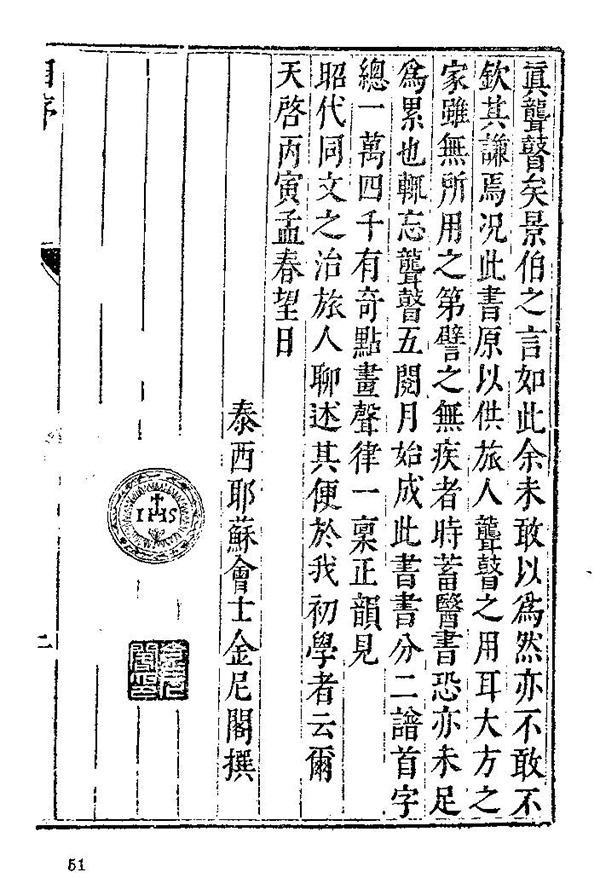 真聾瞽矣景伯之言如此余未敢以爲然亦不敢不
欽其謙焉况此書原以供旅人聾瞽之用耳大方之
家雖無所用之第譬之無疾者時蓄醫書恐亦未足
爲累也輒忘聾瞽五閱月始成此書書分二譜首字
總一萬四千有奇點畫聲律一稟正韻見
昭代同文之治旅人聊述其便於我初學者云爾
天啓丙寅孟春望日
泰西耶蘇會士金尼閣撰
IHS
自序
二
51